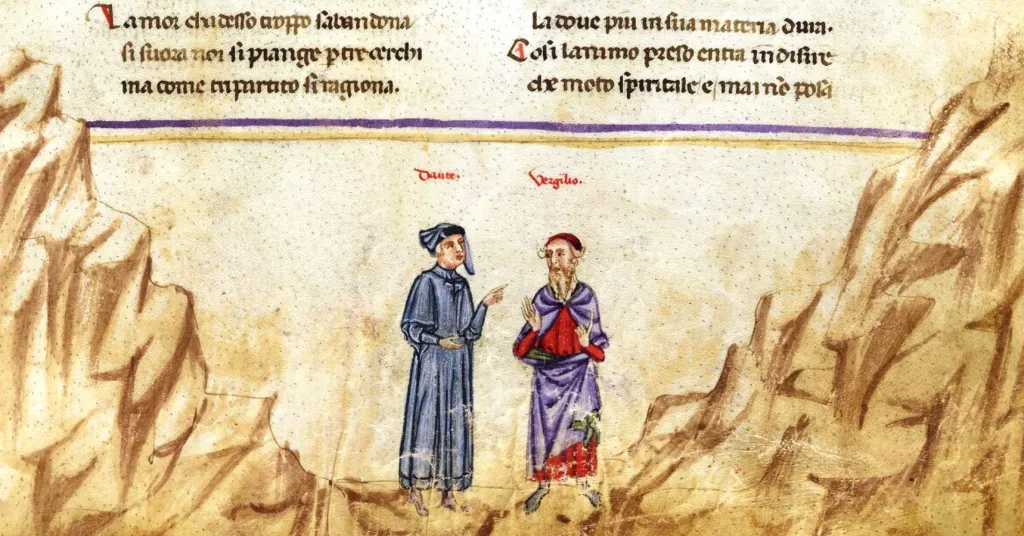 Lamor chadesso troppo sabandona
di soura noi si piange p tre cerchi
ma come tripartito si ragiona.
La doue piu in sua materia dura.
Cosi lanimo preso entra in disire
che moto spiritale e mai nō posa
Dante.
Vergilio.